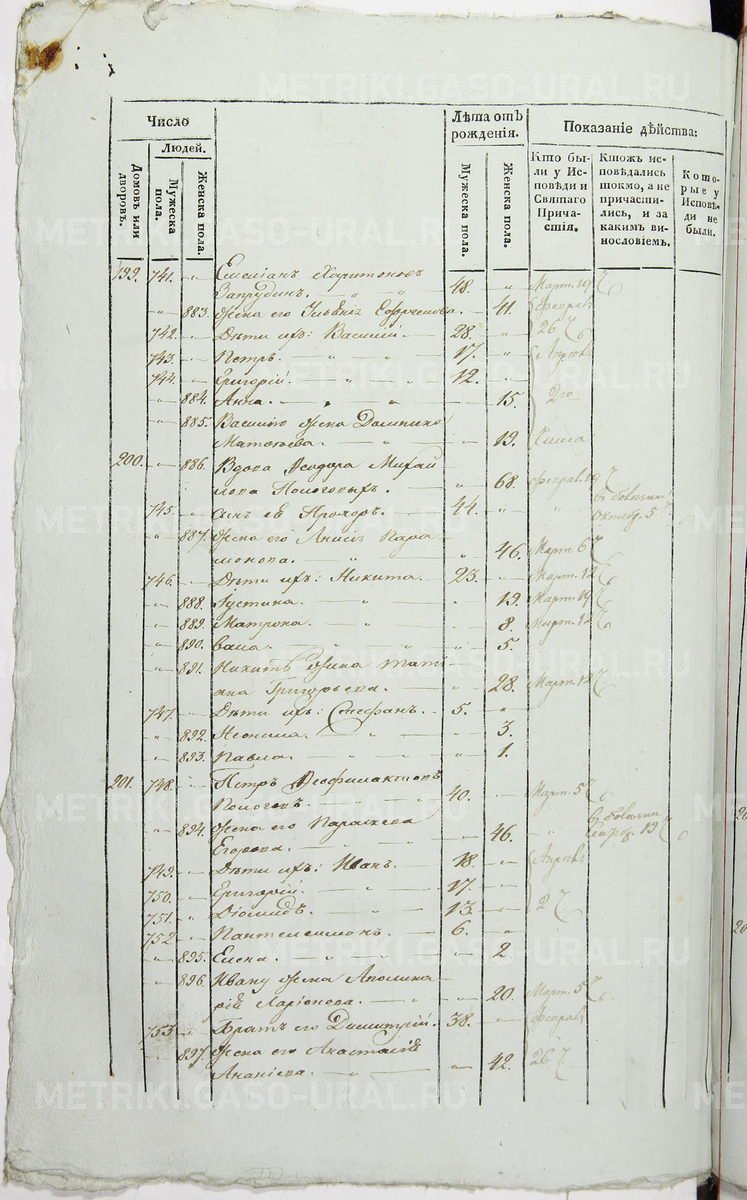 METRIKI.GASO-URAL.RU
Число
Лѣта отъ рожденія.
Показаніе дѣйства:
Людей.
Домовъ или дворовъ.
Мужеска пола.
Женска пола.
Мужеска пола.
Женска пола.
Кто бы-
ли у Ис-
повѣди и
Святаго
Прича-
стія.
Ктожъ ис-
повѣдались
токмо, а не
причасти-
лись, и за
какимъ ви-
нословіемъ.
Кото-
рые у
Исповѣ-
ди не
были.
199. 741. Емеліанъ Харитоновъ
Запрудинъ. 48. Март. 19
883. Жена его Ефремова. 41. Феврал
742. Дѣти ихъ: Василій. 28. 26
743. Петръ. 17. Апрѣл
744. Григорій. 12.
884. Анна. 15. 2го
885. Василію жена Домника
Матѳѣева. 19. числа
200. 886. Вдова Ѳеодора Михай
лова Пологовыхъ. 68. Феврал. 19
745. Сынъ ея Прохоръ. 44. Октяб. 5
887. Жена его Анисія Пара
монова. 46. Март. 6
746. Дѣти ихъ: Никита. 23. Март. 12
888. Іустина. 19. Март. 19
889. Матрона. 8. Март. 12
890. 5.
891. Никитѣ жена Тать
яна Григорьева. 28. Март. 12
747. Дѣти ихъ: Стефанъ. 5.
892. Неонила. 3.
893. Павла. 1.
201. 748. Петръ Ѳеофилактовъ
Пологовъ. 40. Март. 5
894. Жена его Параскева
Егорова. 46. 19
749. Дѣти ихъ: Иванъ. 18. Апрѣл
750. Григорій. 17.
751. Діомидъ. 13. 2
752. Пантелеимонъ. 6.
895. Елена. 2
896. Ивану жена Аполина
рія Ларіонова. 20. Март. 5
753. Братъ его Димитрій. 38. Феврал
897. Жена его Анастасія
Ананіева. 42. 26